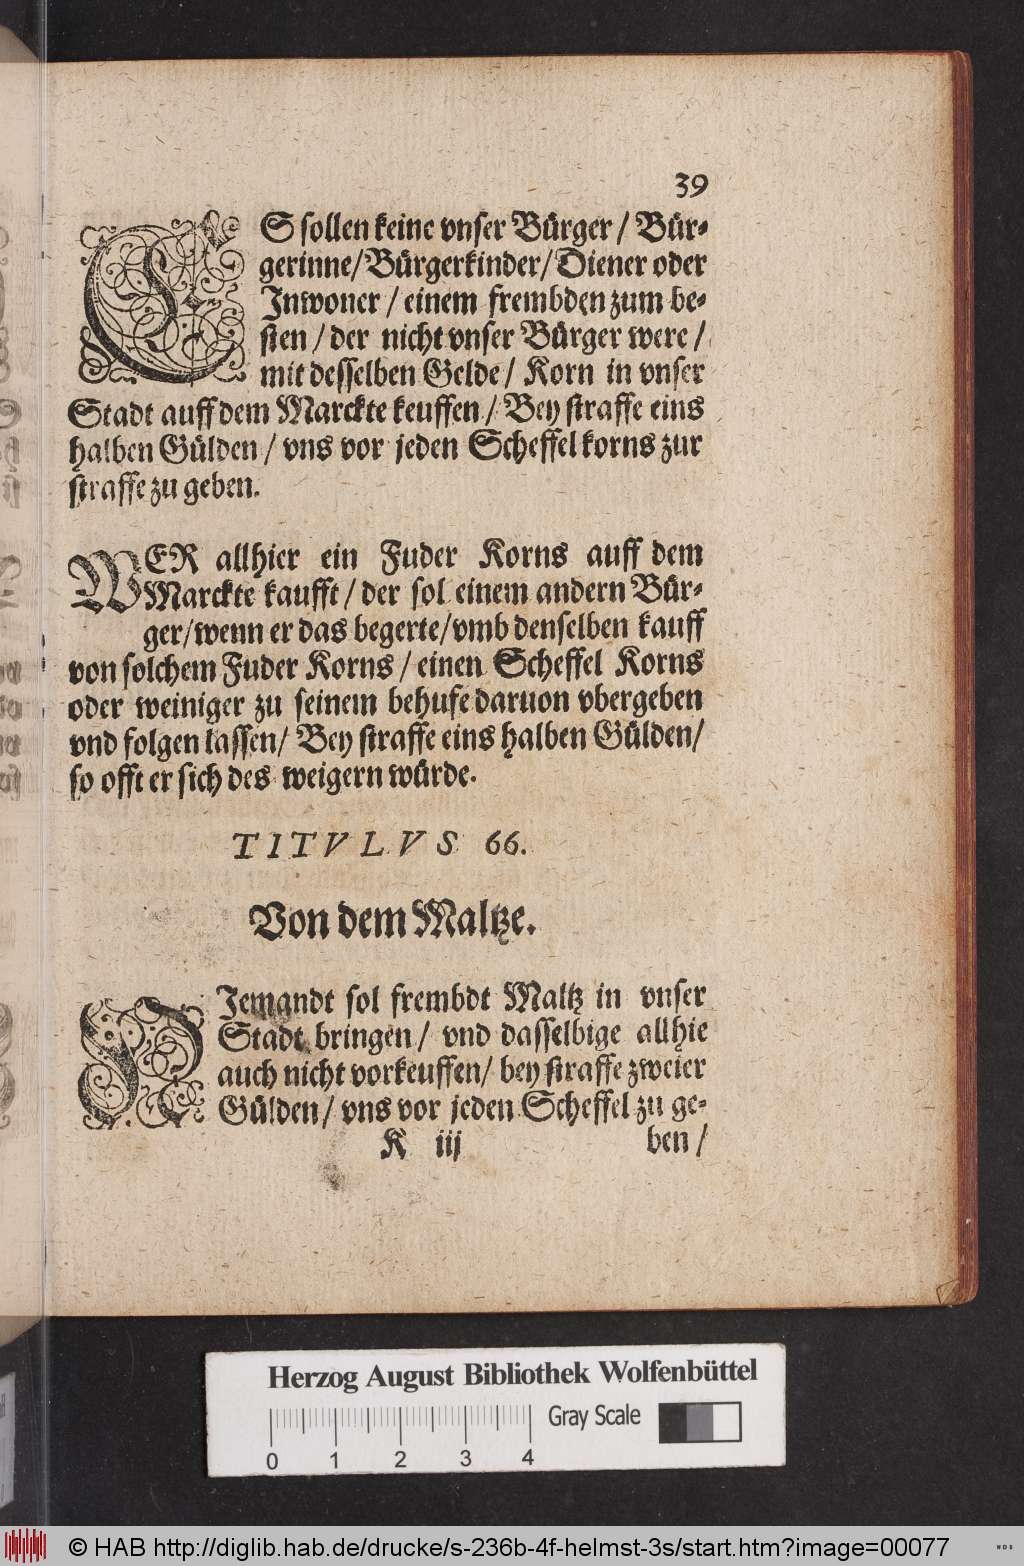 39
ES sollen keine vnser Bürger / Bür-
gerinne/Bürgerkinder/Diener oder
Inwoner / einem frembden zum be-
sten / der nicht vnser Bürger were /
mit desselben Gelde / Korn in vnser
Stadt auff dem Marckte keuffen / Bey straffe eins
halben Gülden / vns vor jeden Scheffel korns zur
straffe zu geben.
WER allhier ein Fuder Korns auff dem
Marckte kaufft / der sol einem andern Bür-
ger/wenn er das begerte/vmb denselben kauff
von solchem Fuder Korns / einen Scheffel Korns
oder weiniger zu seinem behufe daruon vbergeben
vnd folgen lassen / Bey straffe eins halben Gülden /
so offt er sich des weigern würde.
TITVLVS 66.
Von dem Maltze.
NJemandt sol frembdt Maltz in vnser
Stadt bringen / vnd dasselbige allhie
auch nicht vorkeuffen / bey straffe zweier
Gülden / vns vor jeden Scheffel zu ge-
K iij ben /
Herzog August Bibliothek Wolfenbüttel
Gray Scale
0 1 2 3 4
© HAB http://diglib.hab.de/drucke/s-236b-4f-helmst-3s/start.htm?image=00077